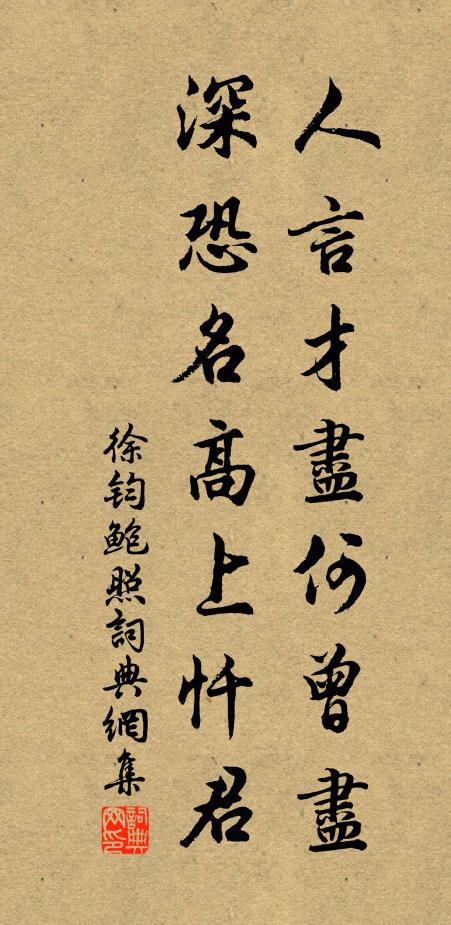 人言才盡何曾盡
深恐名高上忏君
徐钧鲍照詞典網集
詞典網印